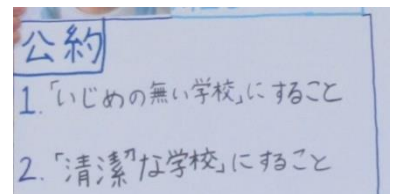 公約
1.「いじめの無い学校」にすること
2.「清潔な学校」にすること